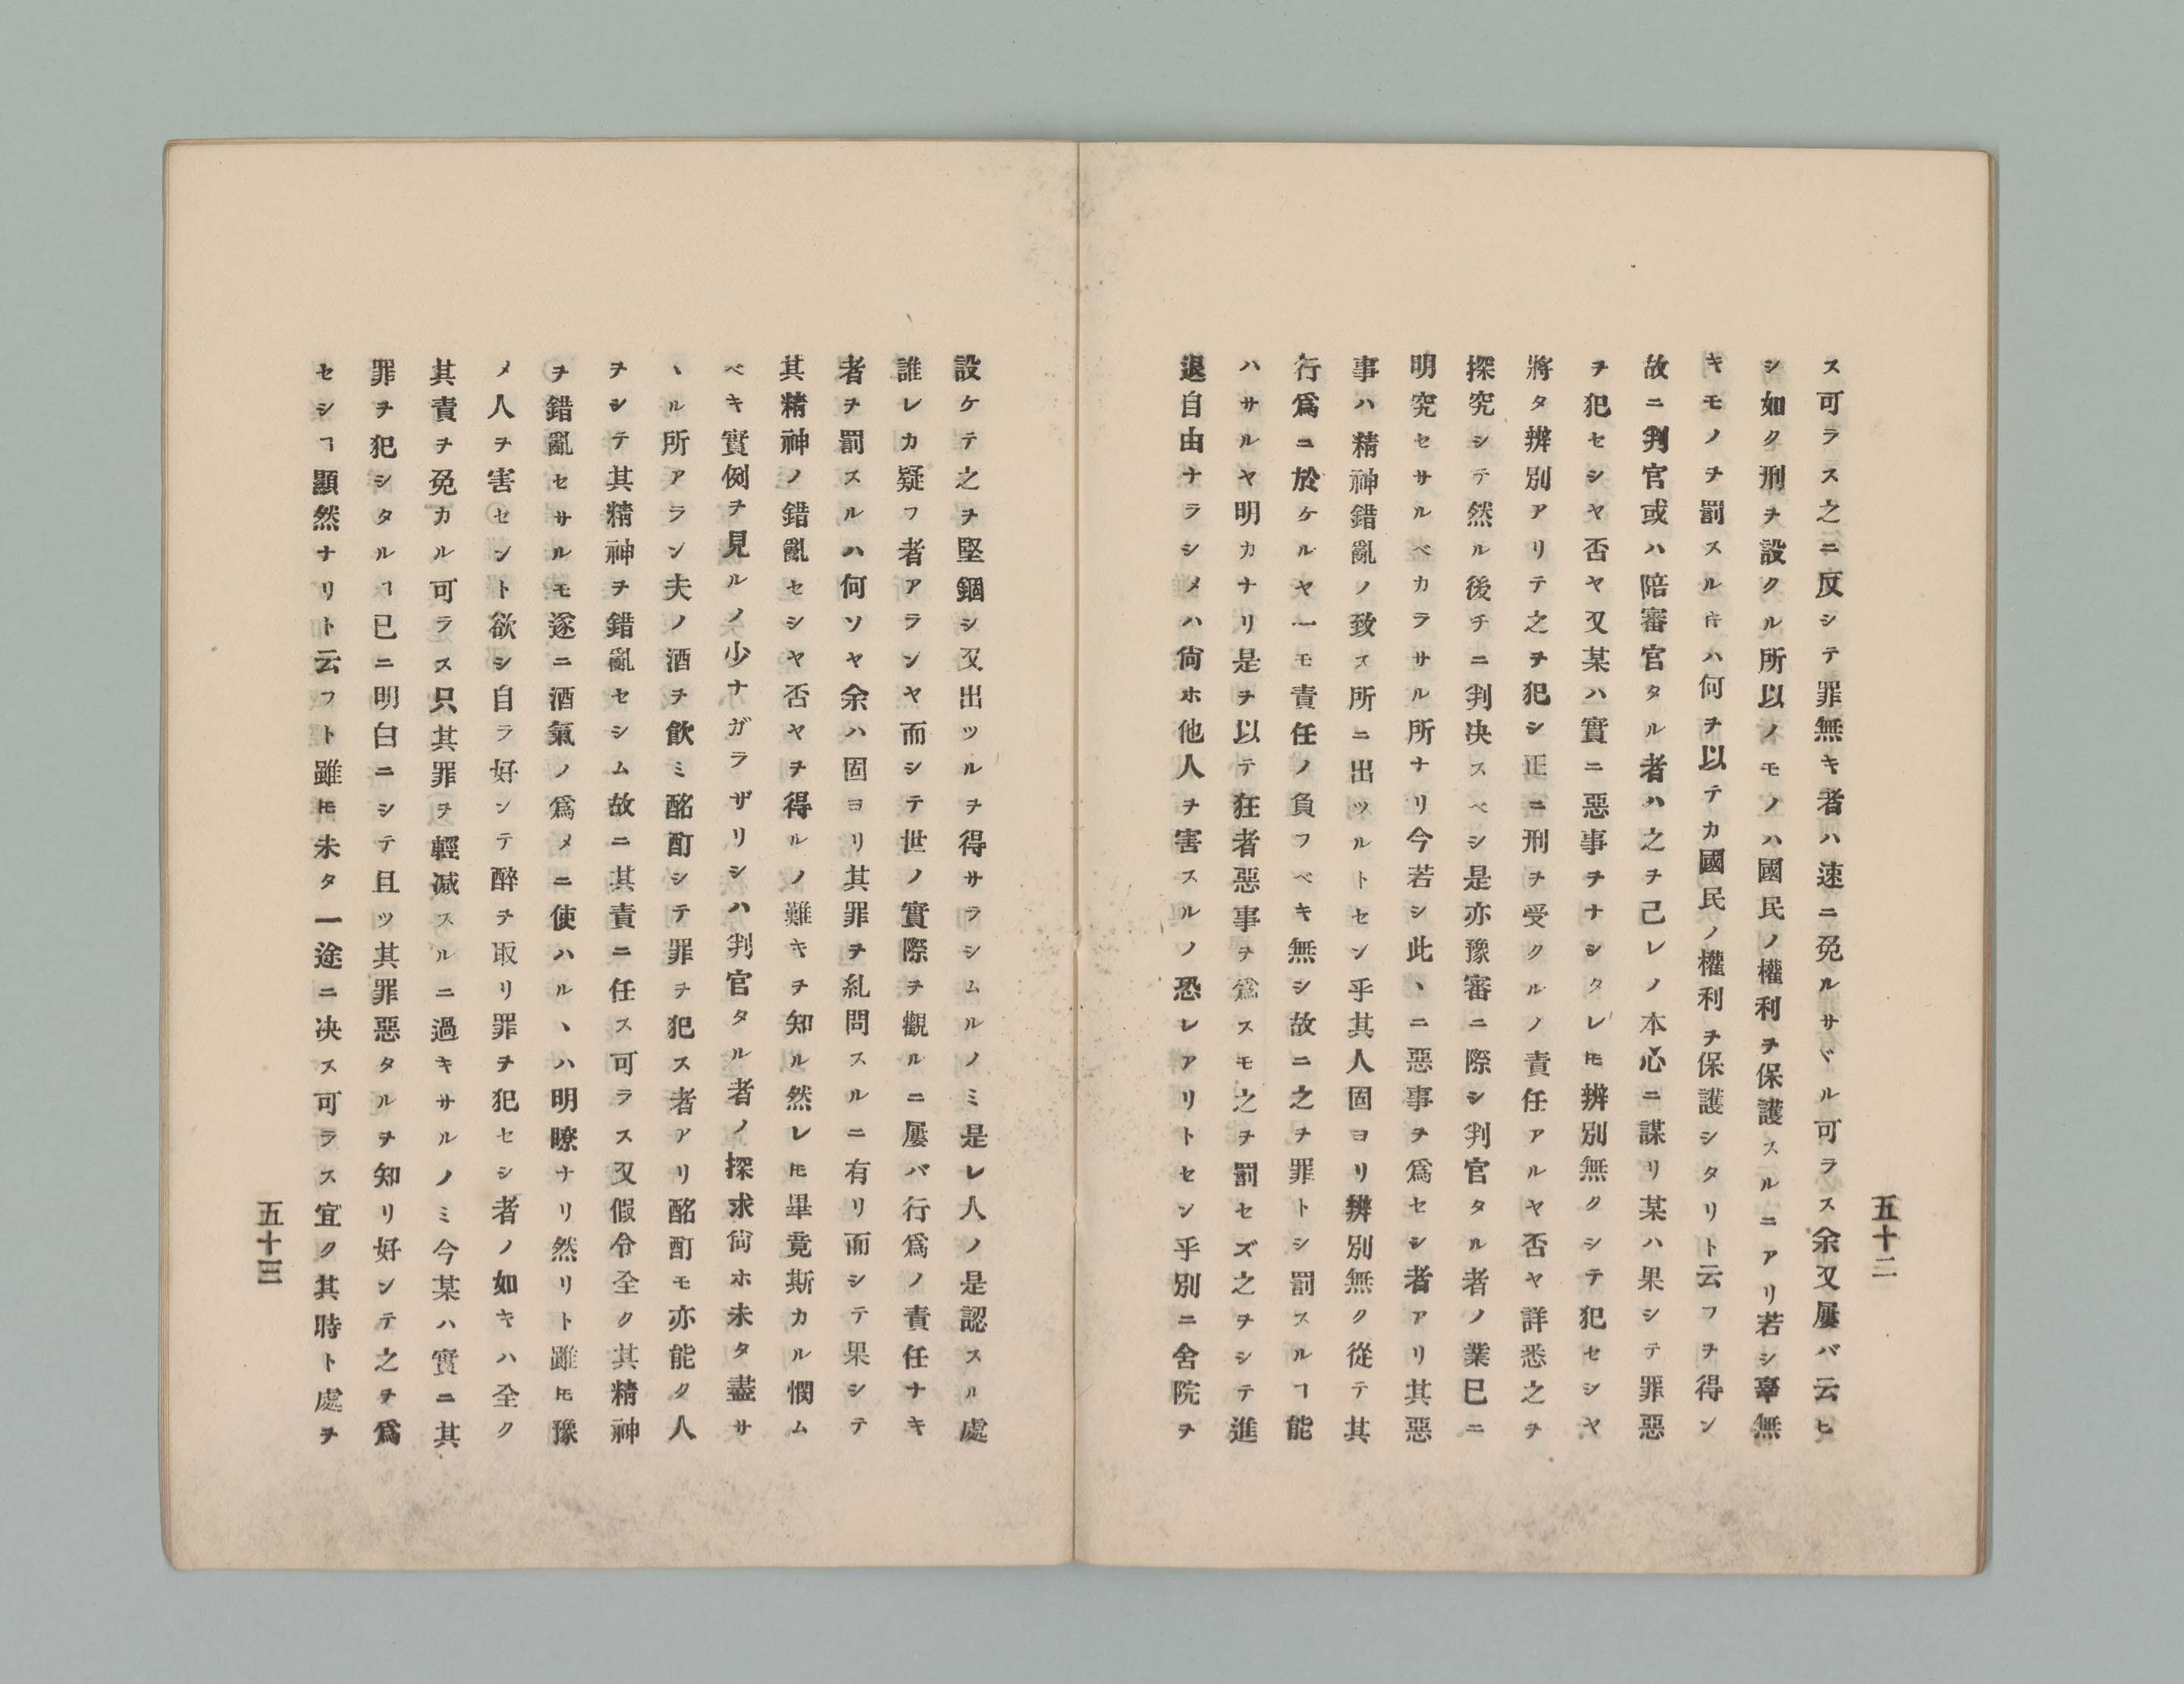 五十二
ス可ラス之ニ反シテ罪無キ者ハ速ニ免ルサヾル可ラス余又屢バ云ヒ
シ如ク刑ヲ設クル所以ノモノハ國民ノ權利ヲ保護スルニアリ若シ辜無
キモノヲ罰スルヰハ何ヲ以テカ國民ノ權利ヲ保護シタリト云フヲ得ン
故ニ判官或ハ陪審官タル者ハ之ヲ己レノ本心ニ謀リ某ハ果シテ罪惡
ヲ犯セシヤ否ヤ又某ハ實ニ惡事ヲナシタレ𪜈辨別無クシテ犯セシヤ
將タ辨別アリテ之ヲ犯シ正ニ刑ヲ受クルノ責任アルヤ否ヤ詳悉之ヲ
探究シテ然ル後チニ判决スベシ是亦豫審ニ際シ判官タル者ノ業巳ニ
明究セサルベカラサル所ナリ今若シ此ヽニ惡事ヲ爲セシ者アリ其惡
事ハ精神錯亂ノ致ス所ニ出ツルトセン乎其人固ヨリ辨別無ク從テ其
行爲ニ於ケルヤ一モ責任ノ負フベキ無シ故ニ之ヲ罪トシ罰スルヿ能
ハサルヤ明カナリ是ヲ以テ狂者惡事ヲ爲スモ之ヲ罰セズ之ヲシテ進
退自由ナラシメハ尙ホ他人ヲ害スルノ恐レアリトセン乎別ニ舍院ヲ
設ケテ之ヲ堅錮シ又出ツルヲ得サラシムルノミ是レ人ノ是認スル處
誰レカ疑フ者アランヤ而シテ世ノ實際ヲ觀ルニ屢バ行爲ノ責任ナキ
者ヲ罰スルハ何ソヤ余ハ固ヨリ其罪ヲ糺問スルニ有リ而シテ果シテ
其精神ノ錯亂セシヤ否ヤヲ得ルノ難キヲ知ル然レ𪜈畢竟斯カル憫ム
ベキ實例ヲ見ルノ少ナガラザリシハ判官タル者ノ探求尙ホ未タ盡サ
ヽル所アラン夫ノ酒ヲ飮ミ酩酊シテ罪ヲ犯ス者アリ酩酊モ亦能ク人
ヲシテ其精神ヲ錯亂セシム故ニ其責ニ任ス可ラス又假令全ク其精神
ヲ錯亂セサルモ遂ニ酒氣ノ爲メニ使ハルヽハ明瞭ナリ然リト雖𪜈豫
メ人ヲ害セント欲シ自ラ好ンテ醉ヲ取リ罪ヲ犯セシ者ノ如キハ全ク
其責ヲ免カル可ラス只其罪ヲ輕减スルニ過キサルノミ今某ハ實ニ其
罪ヲ犯シタルヿ已ニ明白ニシテ且ツ其罪惡タルヲ知リ好ンテ之ヲ爲
セシヿ顯然ナリト云フト雖𪜈未タ一途ニ决ス可ラス宜ク其時ト處ヲ
五十三